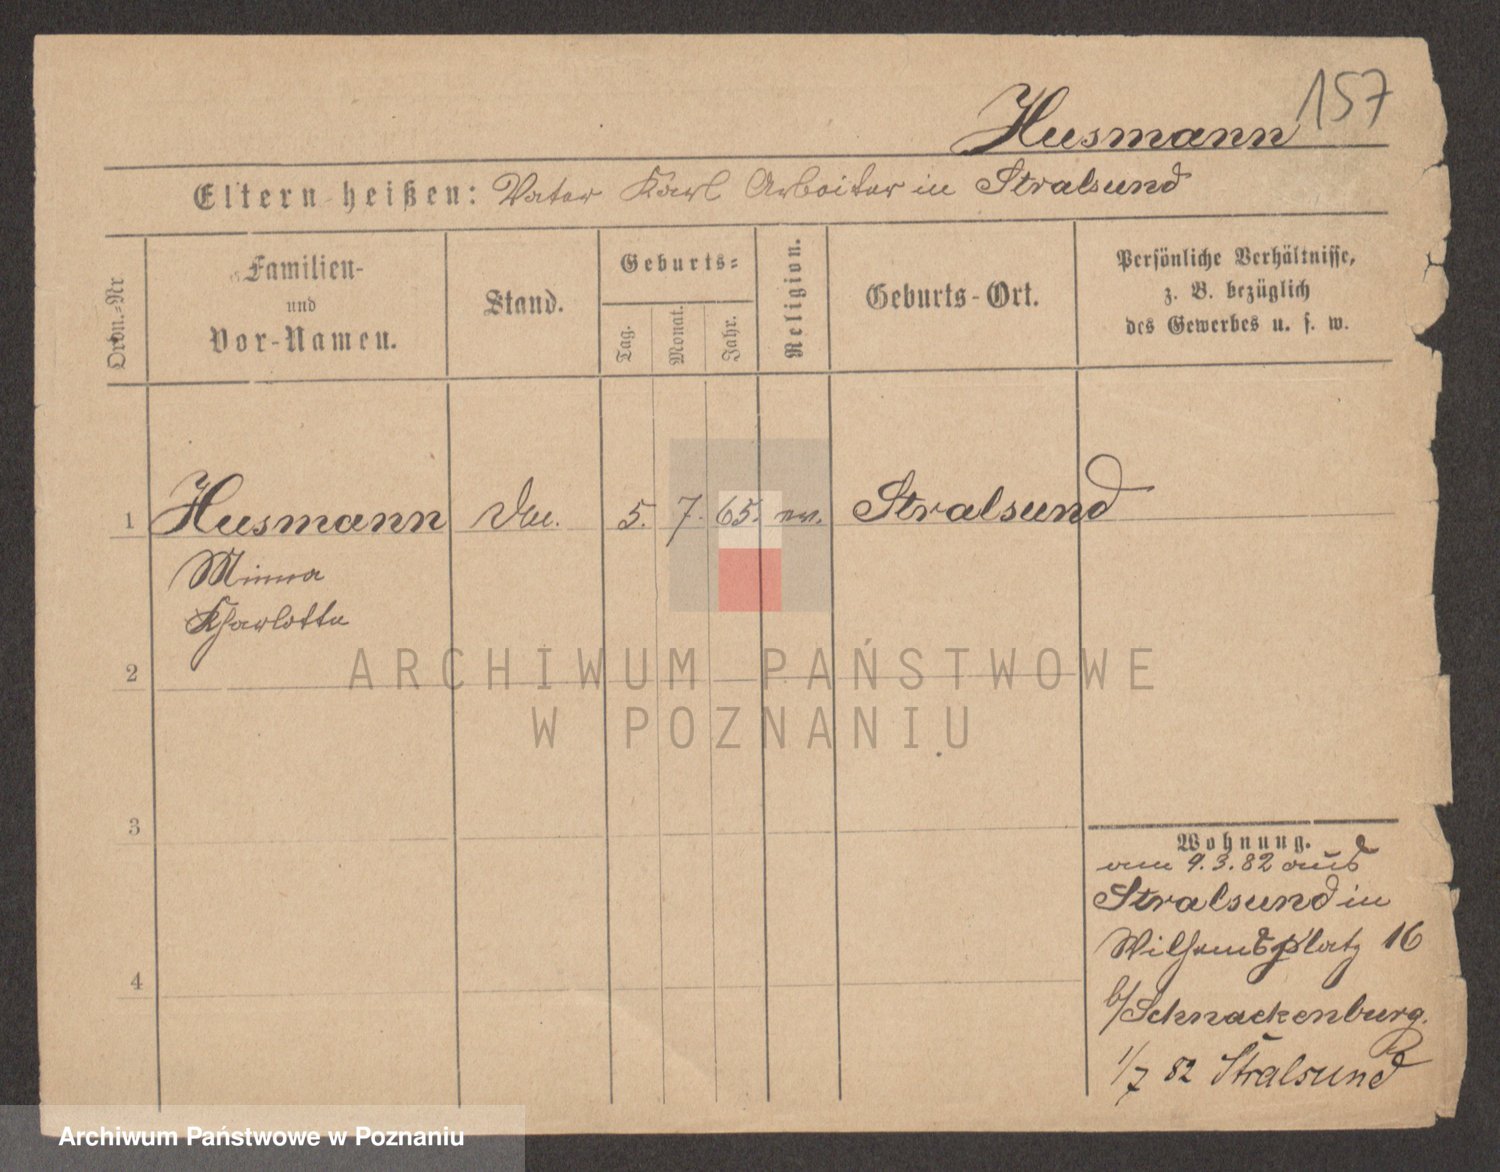 157
Husmann
Eltern heißen: Vater Karl Arbeiter in Stralsund
Ordn.-Nr
Familien-
und
Vor-Namen.
Stand.
Geburts-
Tag.
Monat.
Jahr.
Religion.
Geburts-Ort.
Persönliche Verhältnisse,
z. B. bezüglich
des Gewerbes u. s. w.
1 Husmann 5. 7. 65. ev. Stralsund
Minna
Kharlotte
2
ARCHIWUM PAŃSTWOWE
W POZNANIU
3
Wohnung.
am 9.3.82 aus
Stralsund in
Wilhemsplatz 16
4
b/Schnackenburg.
1/7 82 Stralsund
Archiwum Państwowe w Poznaniu